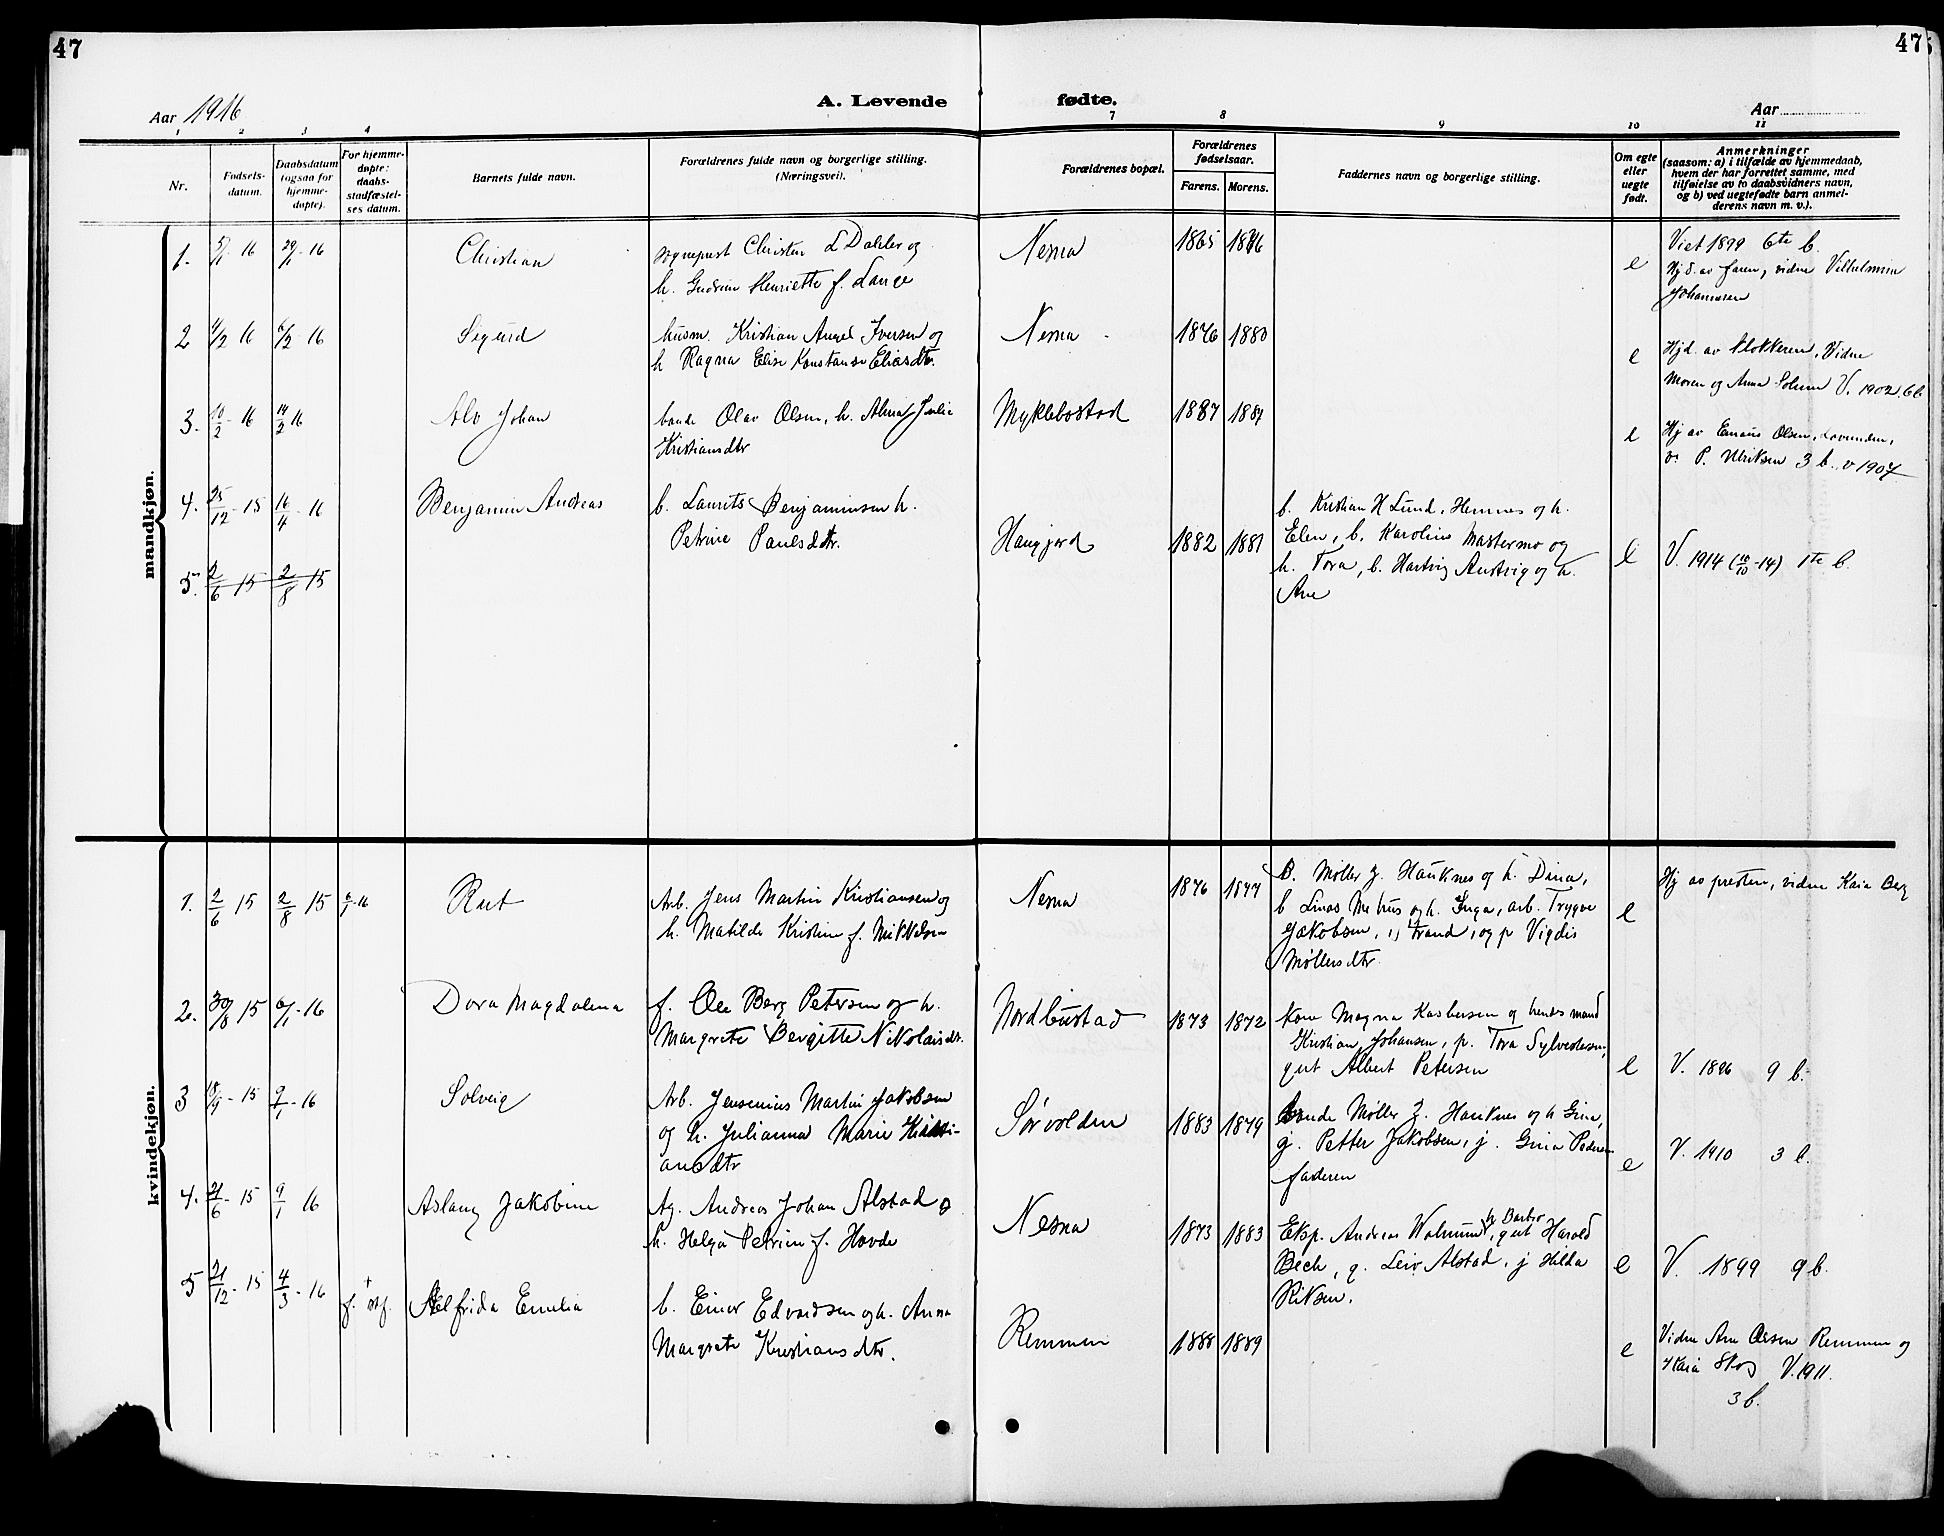 47
47
Aar 1916
A. Levende fødte.
Aar
1 2 3 4 7 8 9 10 11
Nr.
Fødsels-
datum.
Daabsdatum
(ogsaa for
hjemme-
døpte).
For hjemme-
døpte:
daabs-
stadfæstel-
ses datum.
Barnets fulde navn.
Forældrenes fulde navn og borgerlige stilling.
(Næringsvei).
Forældrenes bopæl.
Forældrenes
fødselsaar.
Farens. Morens.
Faddernes navn og borgerlige stilling.
Om egte
eller
uegte
født.
Anmerkninger
(saasom: a) i tilfælde av hjemmedaab,
hvem der har forrettet samme, med
tilføielse av to daabsvidners navn,
og b) ved uegtefødte barn anmel-
derens navn m. v.).
mandkjøn.
1. 5/1 16 29/1 - 16
Christian
sogneprest Christen L Dahler og
h. Gudrun Henriette f. Lange
Nesna
1865 1876
e
Viet 1899 6te b.
Hjd. av faren, vidne Vilhelmine
Johannesen
2 4/2 16 6/2 - 16
Sigurd
husm. Kristian Angel Iversen og
h Ragna Elise Konstanse Eliasdtr.
Nesna
1876 1880
e
Hjd. av klokkeren, Vidne
Moren og Anna Solum V. 1902. 6 b
3. 10/2 - 16 14/2 16
Alv Johan
bonde Olav Olsen, h. Alma Julie
Kristiansdtr
Myklebostad
1887 1884
e
Hj av Emaus Olsen, Lovunden,
v. P. Ulriksen 3 b. v 1907
4. 25/12 - 15 16/4 - 16
Benjamin Andreas
b. Laurits Benjaminsen h.
Petrine Paulsdtr.
Haugjord
1882 1881
b. Kristian H Lund, Hemnes og h.
Elen, b. Karolius Mastermo og
h. Tora, b. Hartvig Austvig og h.
Ane
e
V. 1914 (10/10 -14) 1te b.
5. 2/6 15 2/8 15
kvindekjøn.
1. 2/6 15 2/8 15 6/1 - 16
Rut
Arb. Jens Martin Kristiansen og
h. Matilde Kristine f. Mikkelsen
Nesna
1876 1877
B. Møller Z. Hauknes og h. Dina,
b Linas Mehus og h. Inga, arb. Trygve
Jakobsen, og p Vigdis
Møllersdtr.
e
Hj av presten, vidne Kaia Berg
2. 30/8 15 6/1 - 16
Dora Magdalena
f. Ole Berg Petersen og h.
Margrete Bergitte Nikolaisdtr.
Nordbustad
1873 1872
Kone Magna Kasbersen og hendes mand
Kristian Johansen, p. Tora Sylvestersen,
gut Albert Petersen
e
V. 1896 9 b.
3 18/9 - 15 9/1 - 16
Solveig
Arb. Jensenius Martin Jakobsen
og h. Julianna Marie Kristi-
ansdtr
Sørvolden
1883 1879
Bonde Møller Z. Hauknes og h Gina,
g. Petter Jakobsen, j. Gina Pedersen
faderen
e
V. 1910 3 b.
4. 21/6 - 15 9/1 16
Aslaug Jakobine
Ag. Andreas Johan Alstad o
h. Helga Petrine f. Hovde
Nesna
1873 1883
h Barbro
Eksp. Andreas Walnum, gut Harald
Bech, g. Leiv Alstad, j Hilda
Riksen.
e
V. 1899 9 b.
5 21/12 - 15 4/3 - 16
Alfrida Emelia
b. Einar Edvardsen og h. Anna
Margrete Kristiansdtr.
Remmen
1888 1889
e
Vidne Ane Olsen Remmen og
Kaia Skog V. 1911.
3 b.